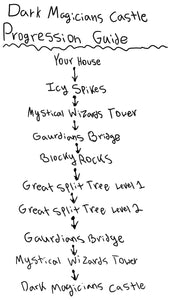 Dark Magicians Castle
Progression Guide
Your House
Icy Spikes
Mystical Wizards Tower
Gaurdians Bridge
Blocky Rocks
Great Split Tree Level 1
Great Split Tree Level 2
Gaurdians Bridge
Mystical Wizards Tower
Dark Magicians Castle